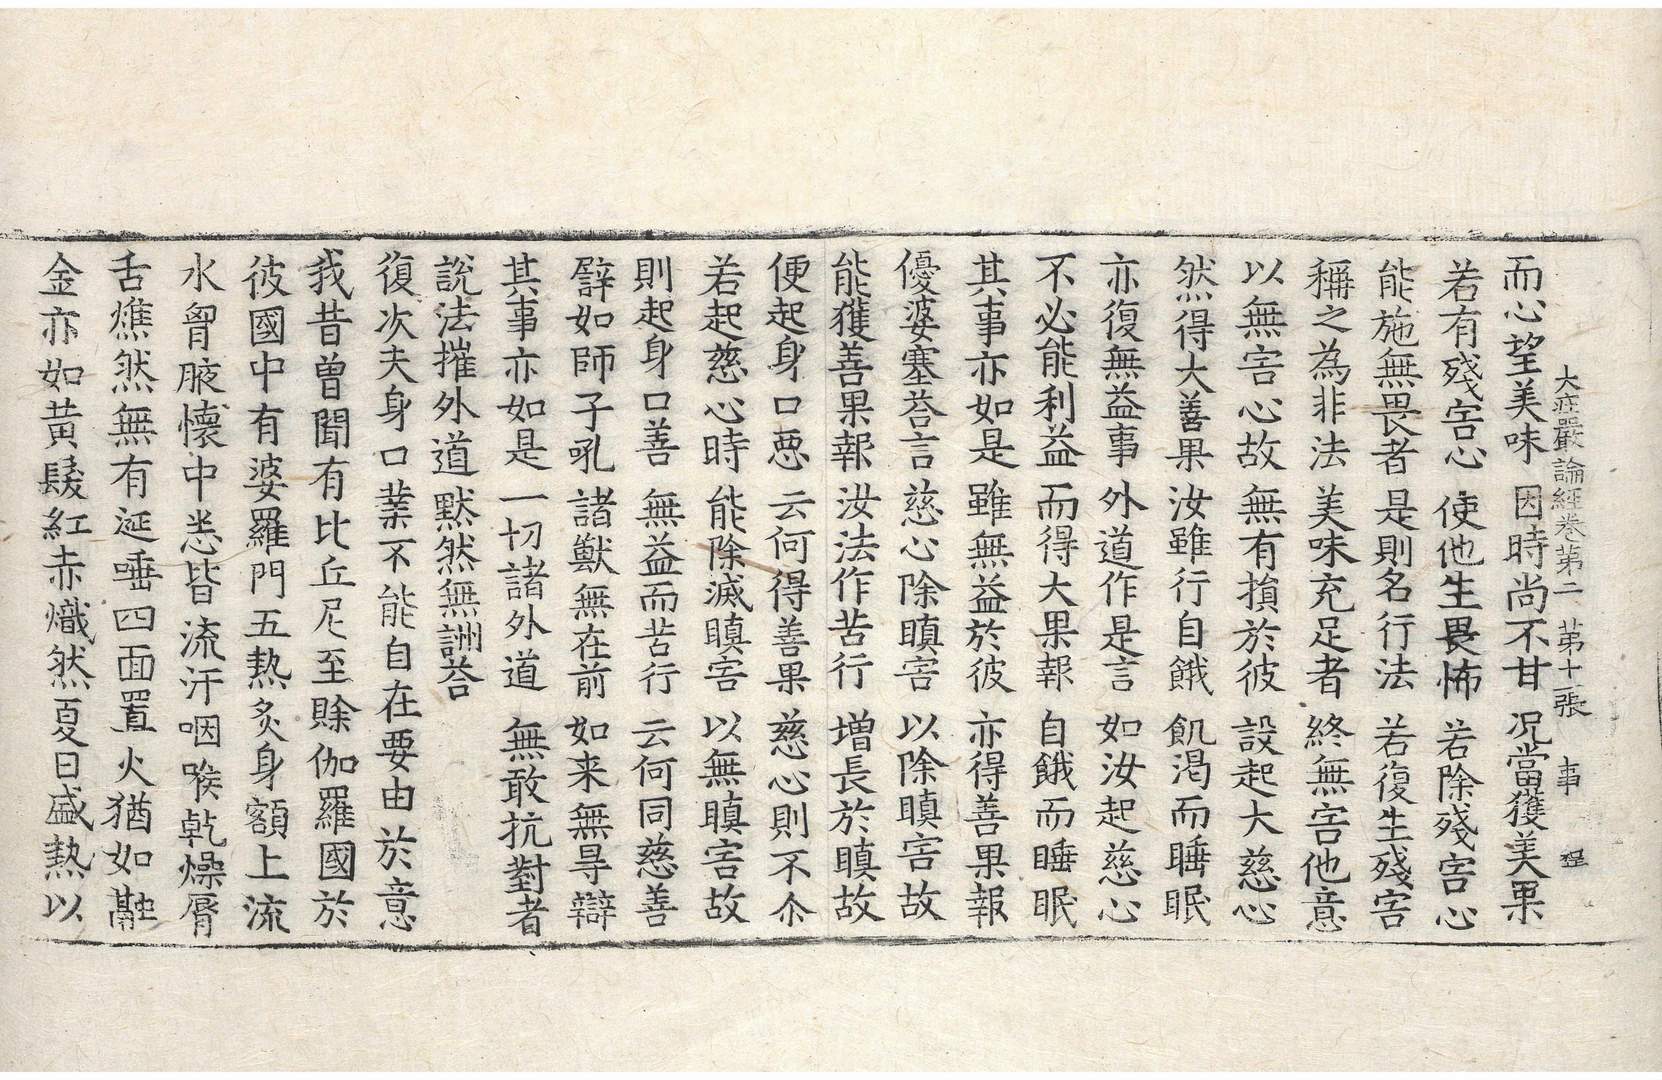 大莊嚴論經卷第二 第十張 事
而心望美味 因時尚不甘 況當獲美果
若有殘害心 使他生畏怖 若除殘害心
能施無畏者 是則名行法 若復生殘害
稱之為非法 美味充足者 終無害他意
以無害心故 無有損於彼 設起大慈心
然得大善果 汝雖行自餓 飢渴而睡眠
亦復無益事 外道作是言 如汝起慈心
不必能利益 而得大果報 自餓而睡眠
其事亦如是 雖無益於彼 亦得善果報
優婆塞荅言 慈心除瞋害 以除瞋害故
能獲善果報 汝法作苦行 增長於瞋故
便起身口惡 云何得善果 慈心則不尒
若起慈心時 能除滅瞋害 以無瞋害故
則起身口善 無益而苦行 云何同慈善
譬如師子吼 諸獸無在前 如来無㝵辯
其事亦如是 一切諸外道 無敢抗對者
說法摧外道 默然無詶荅
復次夫身口業不能自在要由於意
我昔曽聞有比丘尼至賖伽羅國於
彼國中有婆羅門五熱炙身額上流
水胷腋懷中悉皆流汗咽喉乹燥脣
舌燋然無有涎唾四面置火猶如融
金亦如黃髮紅赤熾然夏日盛熱以